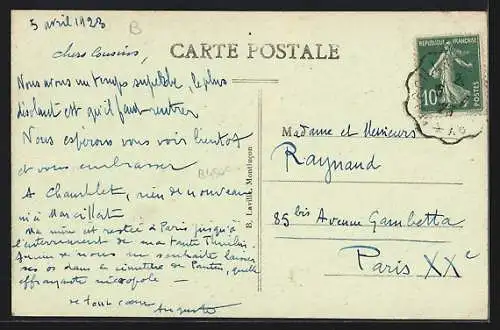 5 avril 1923
B
chers cousins,
CARTE POSTALE
REPUBLIQUE FRANÇAISE
10c
POSTES
Nous avons un temps superbe, le plus
déplaisant est qu'il faut rentrer
Nous espérons vous voir bientôt
et vous embrasser
A Chamblet, rien de nouveau
ni à Marcillat
Ma mère est restée à Paris jusqu'à
l'enterrement de ma tante
de nous ne souhaite laisser
ses os dans le cimetière de Pantin, quelle
effrayante nécropole —
de tout cœur
Auguste
B. Lavillé, Montluçon
Madame et Messieurs
Raynaud
85 bis Avenue Gambetta
Paris XXe